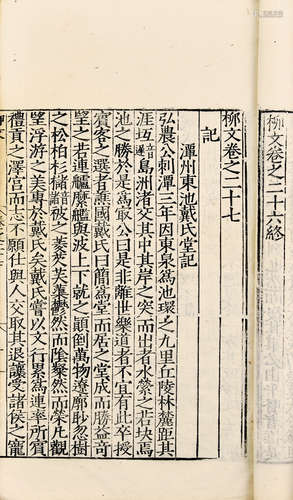 柳文卷之二十六終
柳文卷之二十七
記
潭州東池戴氏堂記
弘農公刺潭三年因東泉爲池環之九里丘陵林麓距其
涯坻島洲渚交其中其岸之突而出者水縈之若玦焉
池之勝於是爲㝡公曰是非離世樂道者不宜有此卒授
賓客之選者譙國戴氏曰簡爲堂而居之堂成而勝益奇
望之若連艫縻艦與波上下就之顛倒萬物遼廓眇忽樹
之松柏杉櫧被之菱芡芙蕖鬱然而陰粲然而榮凡觀
望浮游之美專於戴氏矣戴氏嘗以文行累爲連率所賓
禮貢之澤宮而志不願仕與人交取其退讓受諸侯之寵